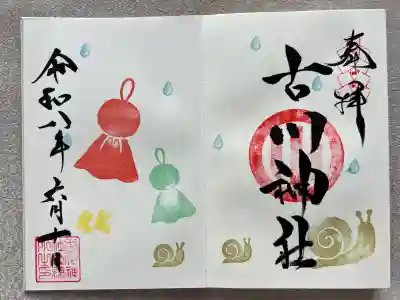 奉拝
古川神社
令和八年六月十一日